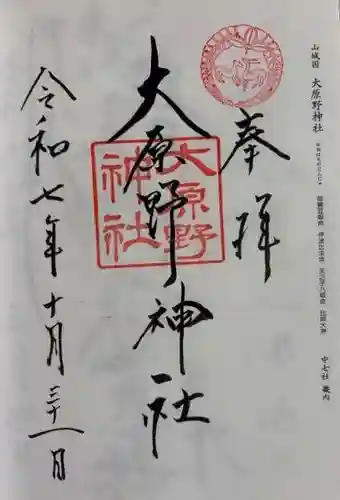 山城国 大原野神社 中七社 畿内
奉拝
大原野神社
大原野
神社
令和七年十月三十一日